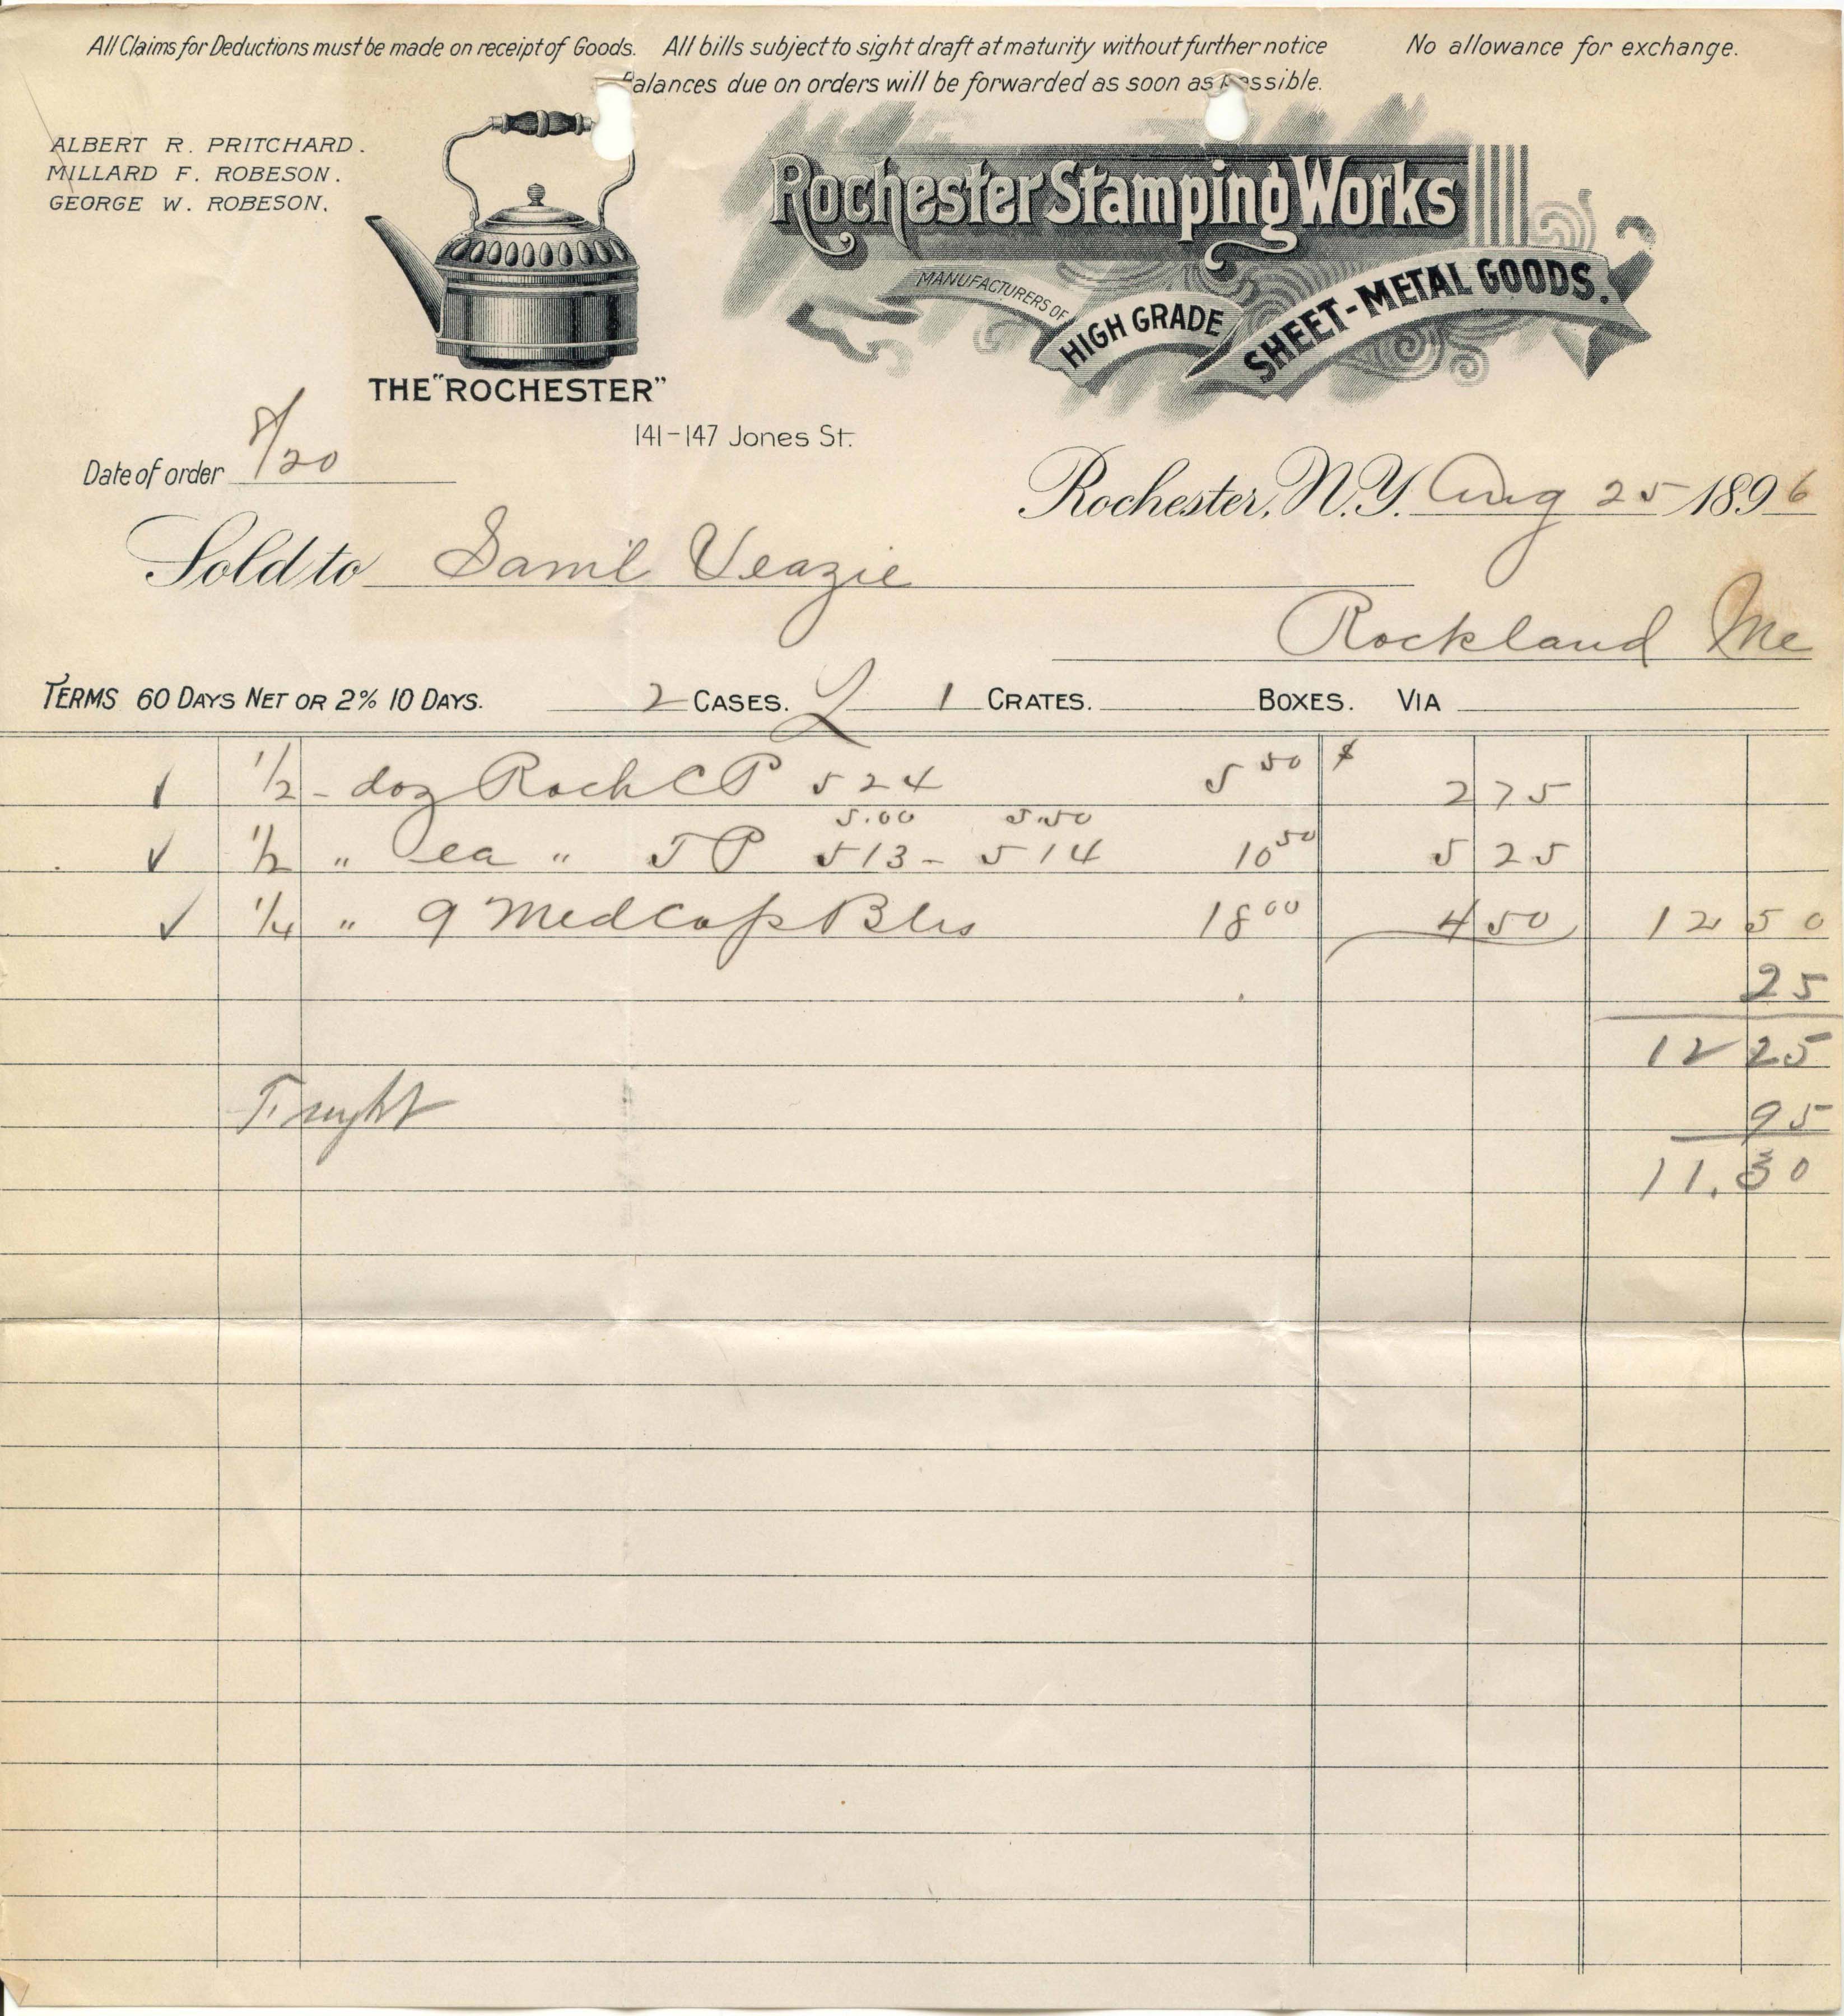 All Claims for Deductions must be made on receipt of Goods. All bills subject to sight draft at maturity without further notice No allowance for exchange.
Balances due on orders will be forwarded as soon as possible.
ALBERT R. PRITCHARD.
MILLARD F. ROBESON.
GEORGE W. ROBESON.
Rochester Stamping Works
MANUFACTURERS OF HIGH GRADE SHEET-METAL GOODS.
THE "ROCHESTER"
141-147 Jones St.
Date of order 8/20
Rochester, N.Y. Aug 25 1896
Sold to Saml Veazie
Rockland Me
TERMS 60 DAYS NET OR 2% 10 DAYS. 2 CASES. 1 CRATES. BOXES. VIA
✓ 1/2 - doz Roch CP 524 5 50 $ 2 75
5.00 5.50
✓ 1/2 " ea " TP 513 - 514 10 50 5 25
✓ 1/4 " 9 Med Cap Blrs 18 00 4 50 12 50
25
12 25
Freight 95
11.30